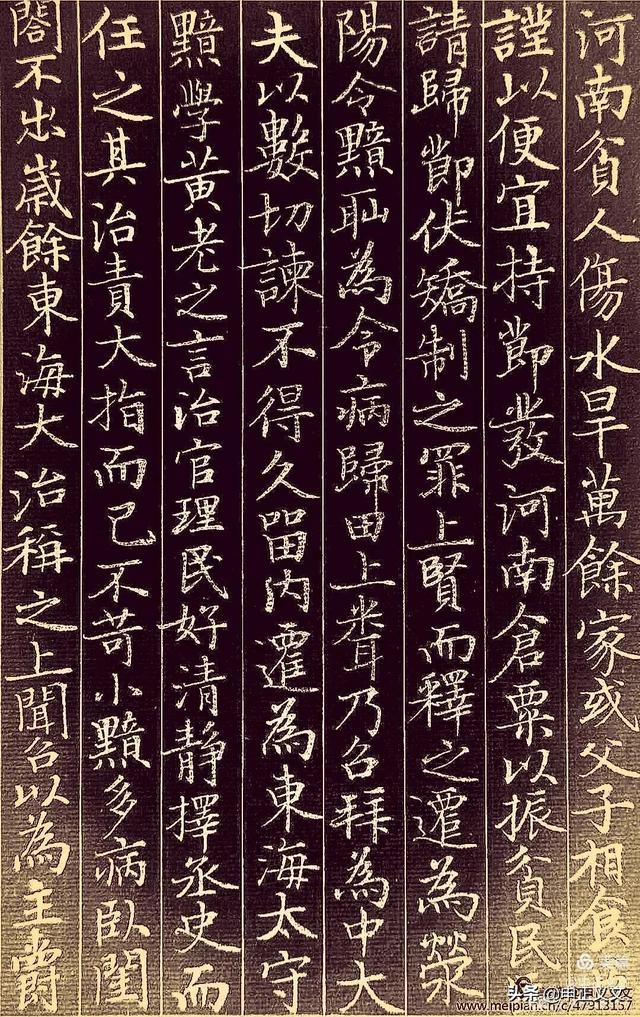 河南貧人傷水旱萬餘家或父子相食
謹以便宜持節發河南倉粟以振貧民
請歸節伏矯制之罪上賢而釋之遷為滎
陽令黯耻為令病歸田上聞乃召拜為中大
夫以數切諫不得久留内遷為東海太守
黯學黃老之言治官理民好清静擇丞史而
任之其治責大指而已不苛小黯多病臥閨
閤不出歲餘東海大治稱之上聞召以為主爵
美篇
头条
www.meipian.cn/c/47913157